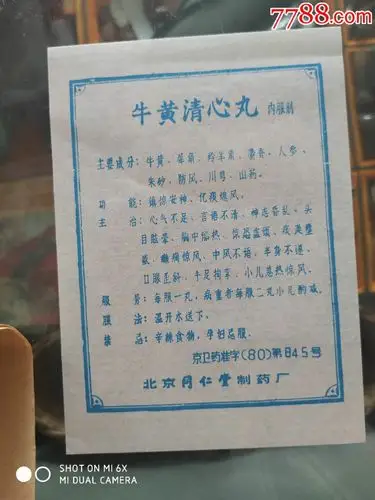 7788.com
牛黄清心丸 内服剂
主要成分：牛黄、犀角、羚羊角、麝香、人参、
朱砂、防风、川芎、山药。
功能：镇惊安神、化痰熄风。
主治：心气不足、言语不清、神志昏乱、头
目眩晕、胸中郁热、惊恐虚烦、痰涎壅
数、癫痫惊风、中风不语、半身不遂、
口眼歪斜、手足拘挛、小儿急热惊风。
服量：每服一丸，病重者每服二丸小儿酌减。
服法：温开水送下。
禁品：辛辣食物，孕妇忌服。
京卫药准字(80)第845号
北京同仁堂制药厂
SHOT ON MI 6X
MI DUAL CAMERA